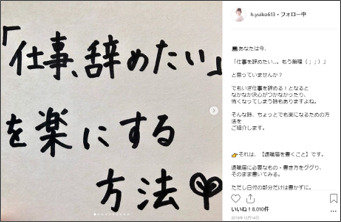 「仕事、辞めたい」
を楽にする
方法
h.yukie613・フォロー中
あなたは今、
「仕事を辞めたい…。もう無理（；；）」
と思っていませんか？
でもいざ仕事を辞める！となると
なかなか決心がつかなかったり、
怖くなってしまう時もありますよね。
そんな時、ちょっとでも楽になるための方
法を
ご紹介します。
それは、【退職届を書くこと】です。
退職届に必要なもの・書き方をググり、
そのまま書いてみる。
ただし日付の部分だけは書かずに。
いいね！8,010件